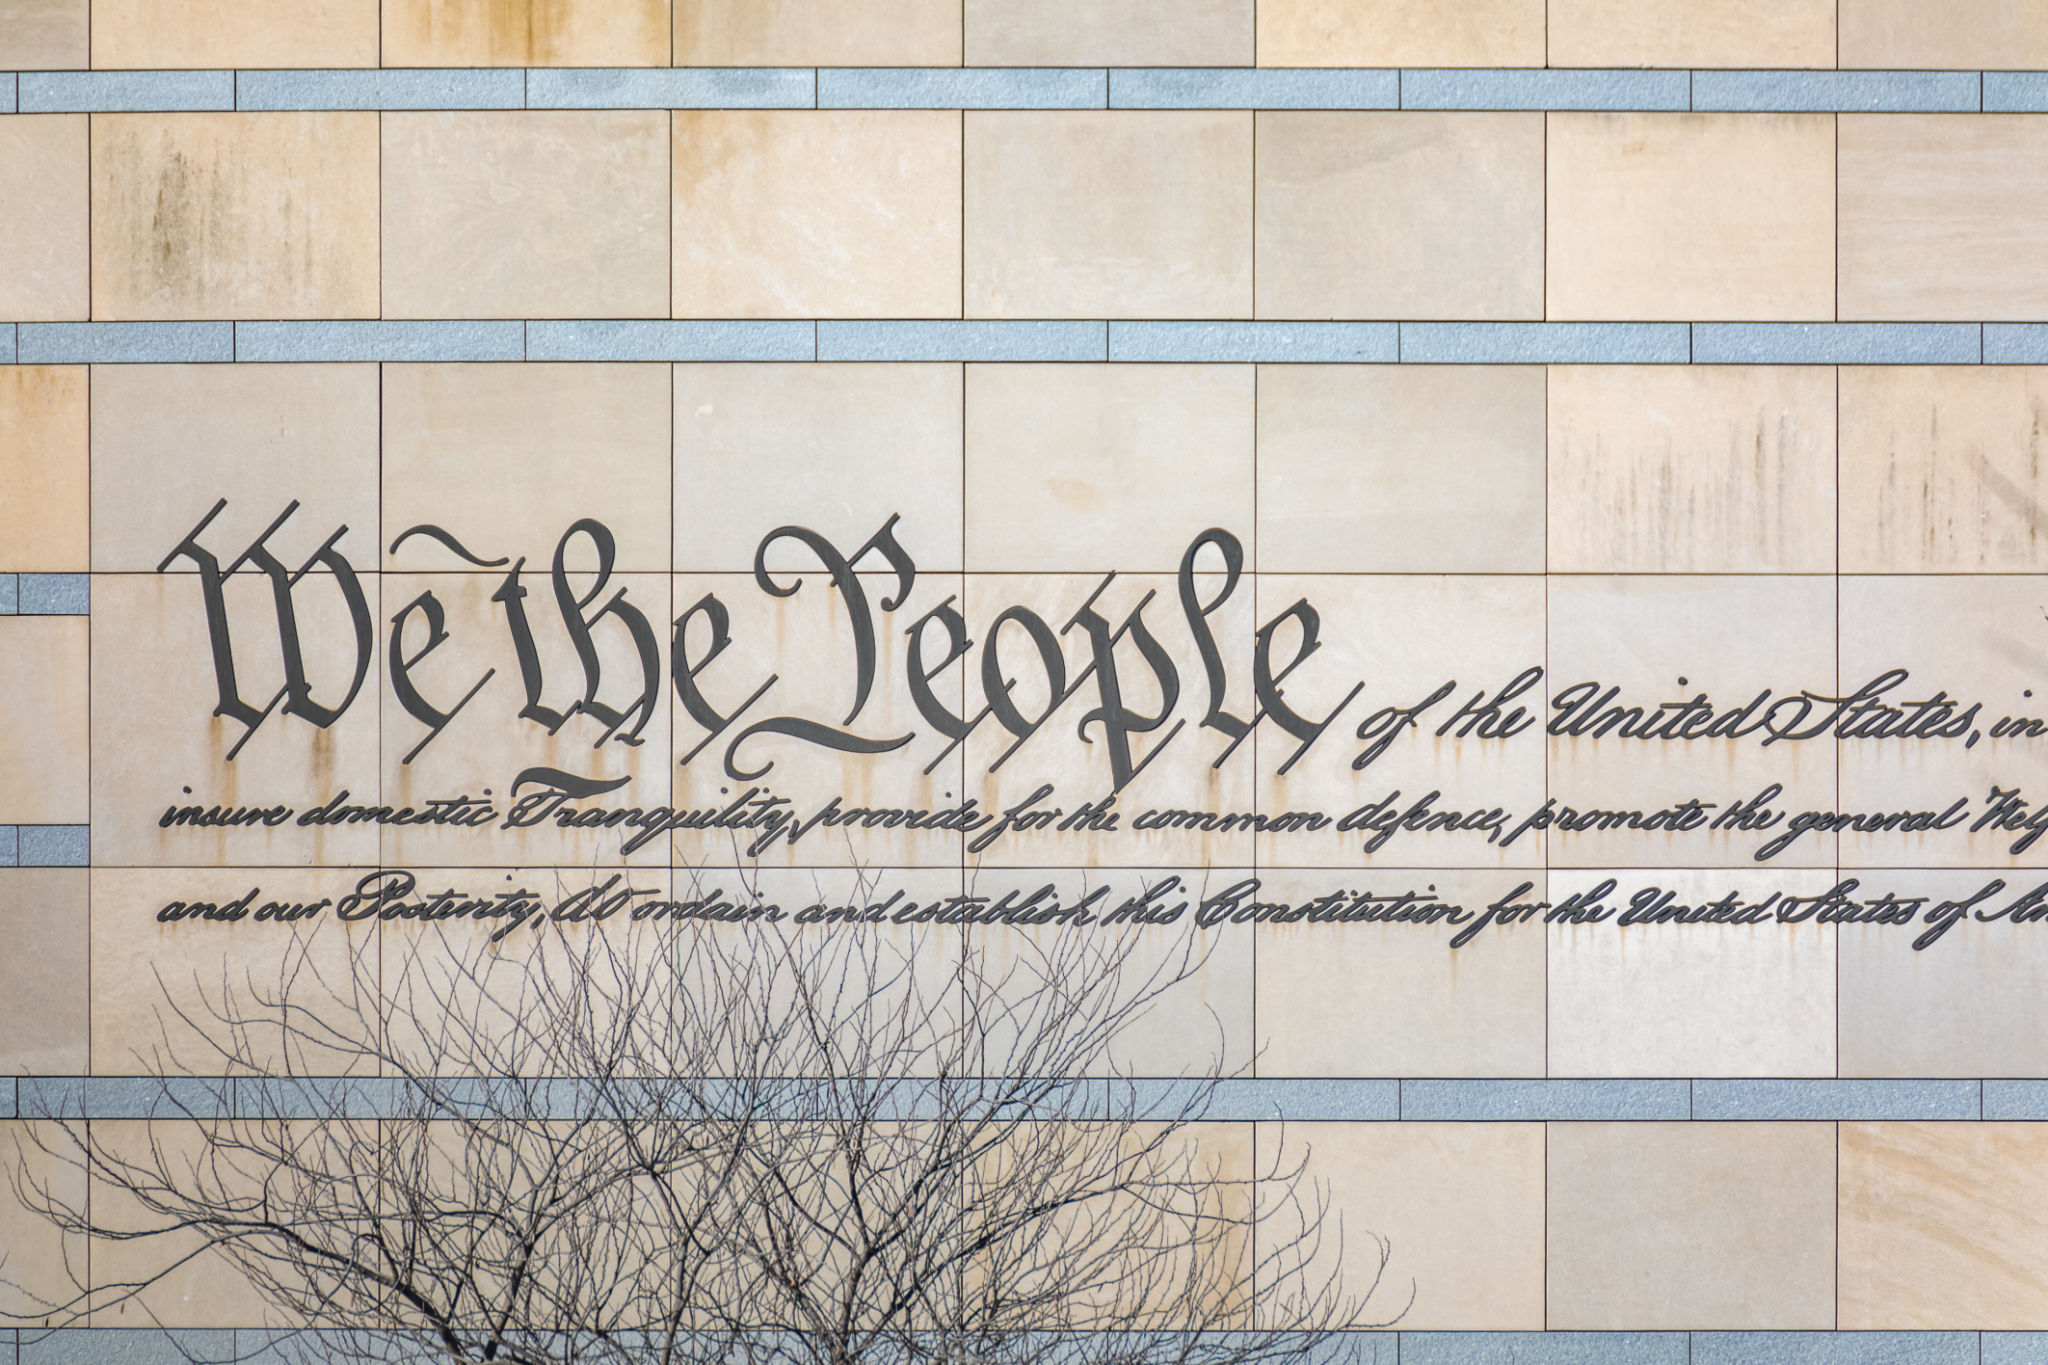 We the People of the United States, in
insure domestic Tranquility, provide for the common defence, promote the general
and our Posterity, do ordain and establish this Constitution for the United States of